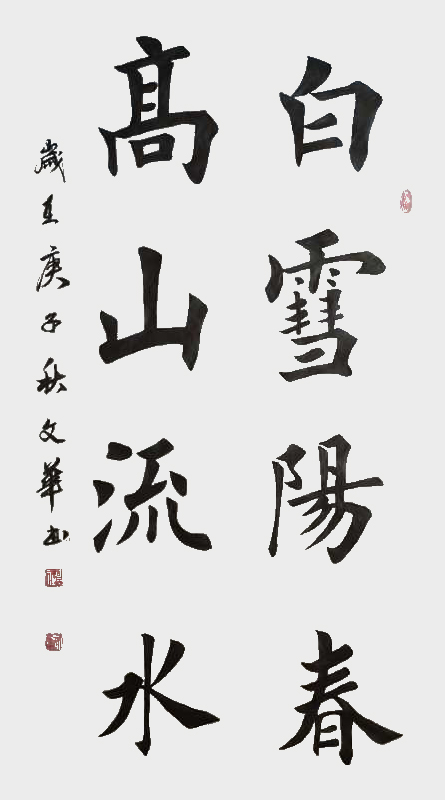 白雪陽春
髙山流水
歲在庚子秋文華书